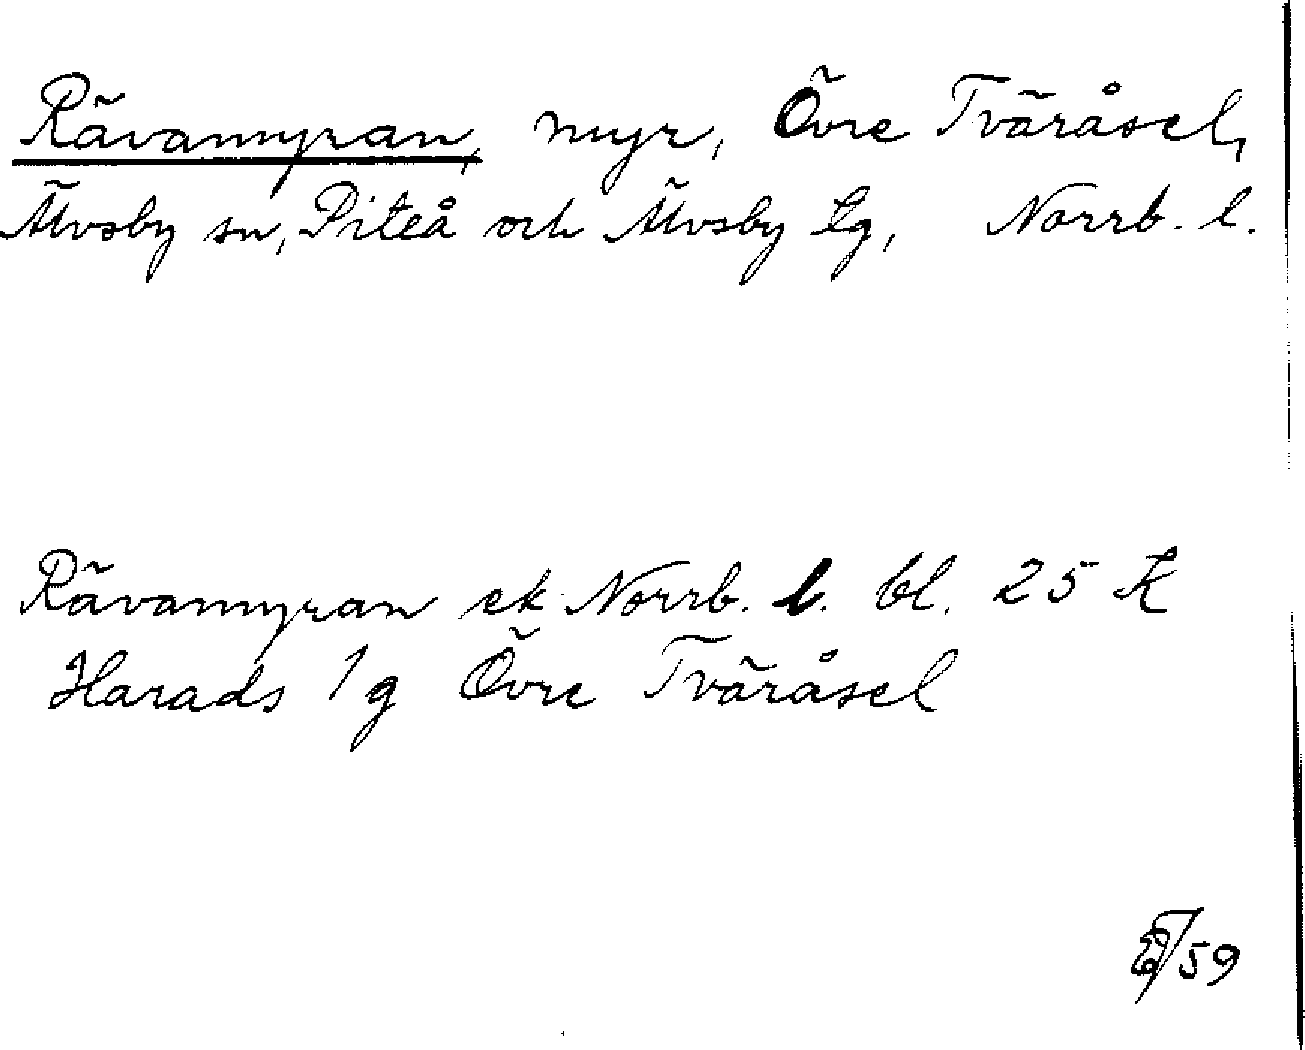 Rävamyran, myr, Övre Tväråsel,
Älvsby sn, Piteå och Älvsby tg, Norrb. l.
Rävamyran ek. Norrb. l. bl. 25 K
Harads 1 g Övre Tväråsel
59